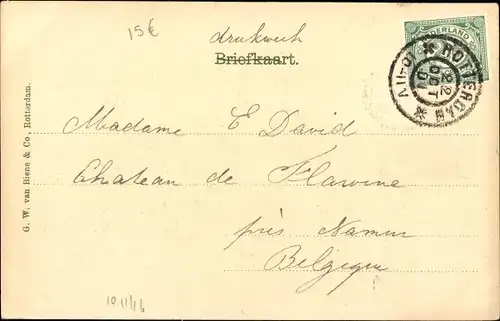 15€
drukwerk
Briefkaart.
NEDERLAND
ROTTERDAM
22
OCT
01
G. W. van Biene & Co, Rotterdam.
Madame E David
Chateau de Flawinne
près Namur
Belgique
10 11/16